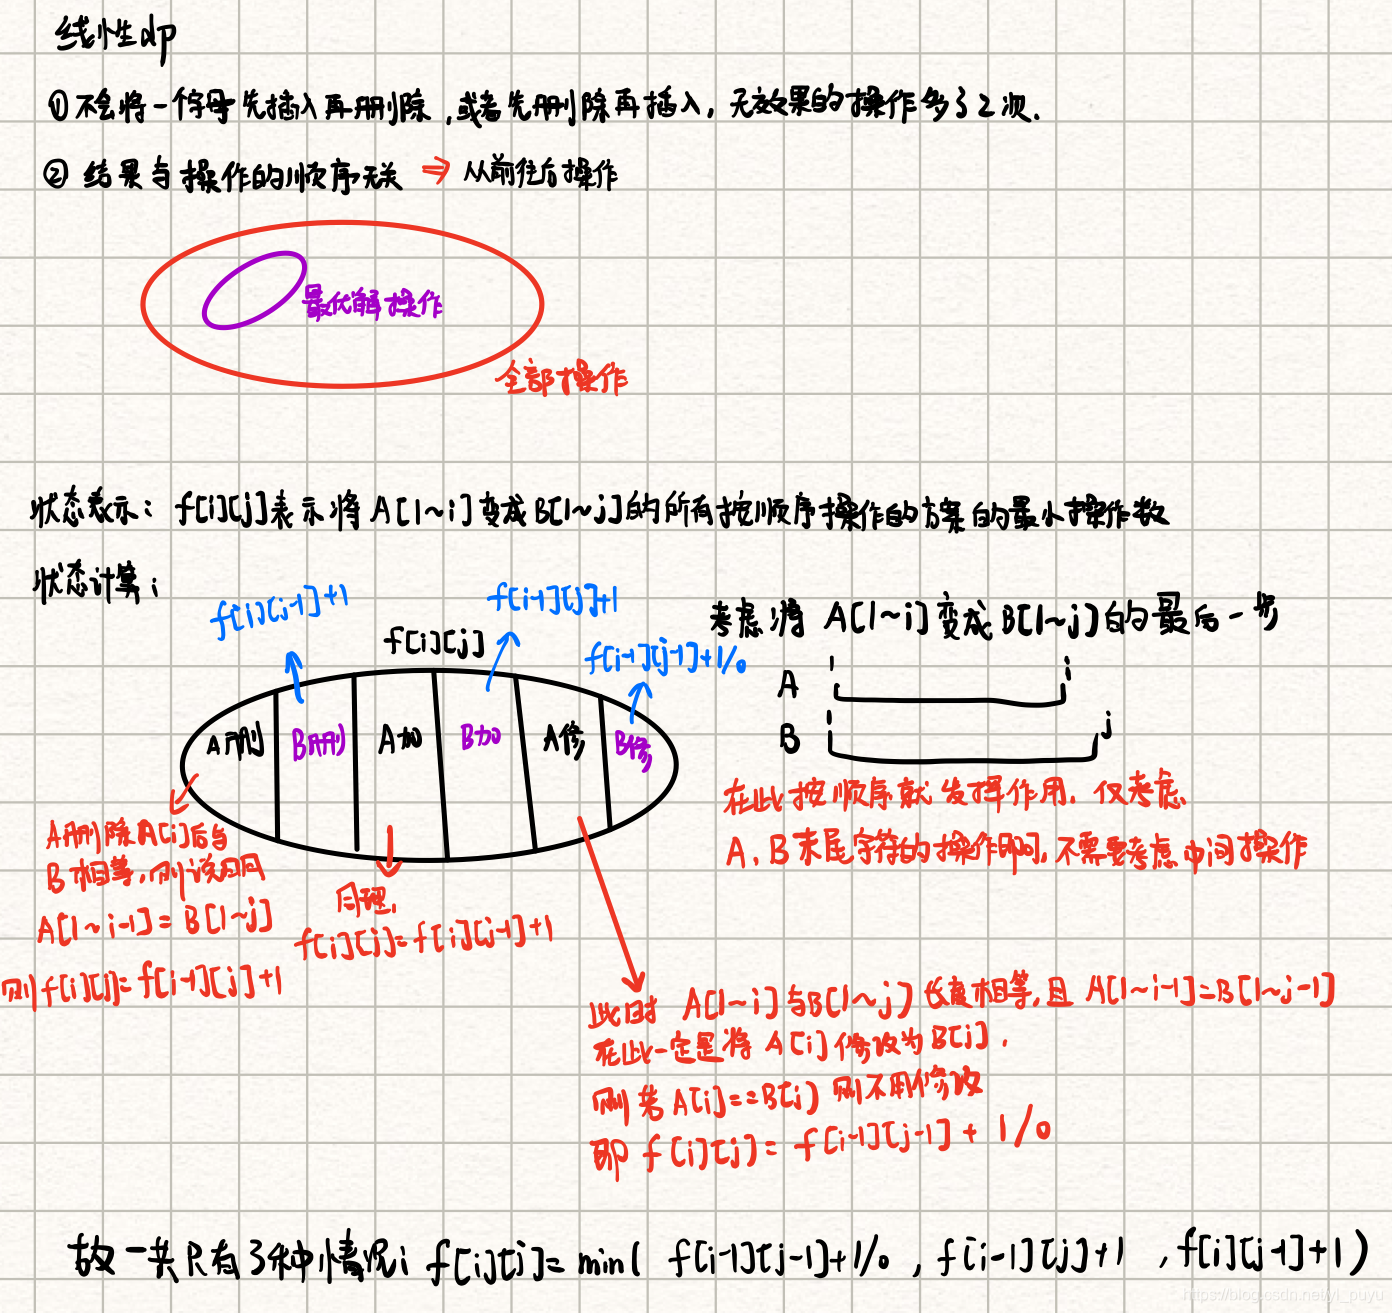 线性dp
① 不会将一个字母先插入再删除,或者先删除再插入,无效果的操作多了2次.
② 结果与操作的顺序无关 ⇒ 从前往后操作
最优解操作
全部操作
状态表示: f[i][j]表示将A[1~i]变成B[1~j]的所有按顺序操作的方案的最小操作数
状态计算:
f[i][j-1]+1
f[i-1][j]+1
f[i][j]
f[i-1][j-1]+1/0
考虑将 A[1~i]变成B[1~j]的最后一步
A 1 i
B 1 j
A删 B删 A加 B加 A修 B修
在此按顺序就发挥作用.仅考虑
A、B末尾字符的操作即可,不需要考虑中间操作
A删除A[i]后与
B相等,则说明
A[1~i-1]=B[1~j]
则f[i][j]=f[i-1][j]+1
同理.
f[i][j]=f[i][j-1]+1
此时 A[1~i]与B[1~j]长度相等,且 A[1~i-1]=B[1~j-1]
在此一定是将 A[i]修改为B[j].
则若A[i]==B[j]则不用修改
即 f[i][j]=f[i-1][j-1]+1/0
故一共只有3种情况: f[i][j]=min( f[i-1][j-1]+1/0 , f[i-1][j]+1 , f[i][j-1]+1)
https://blog.csdn.net/yl_puyu